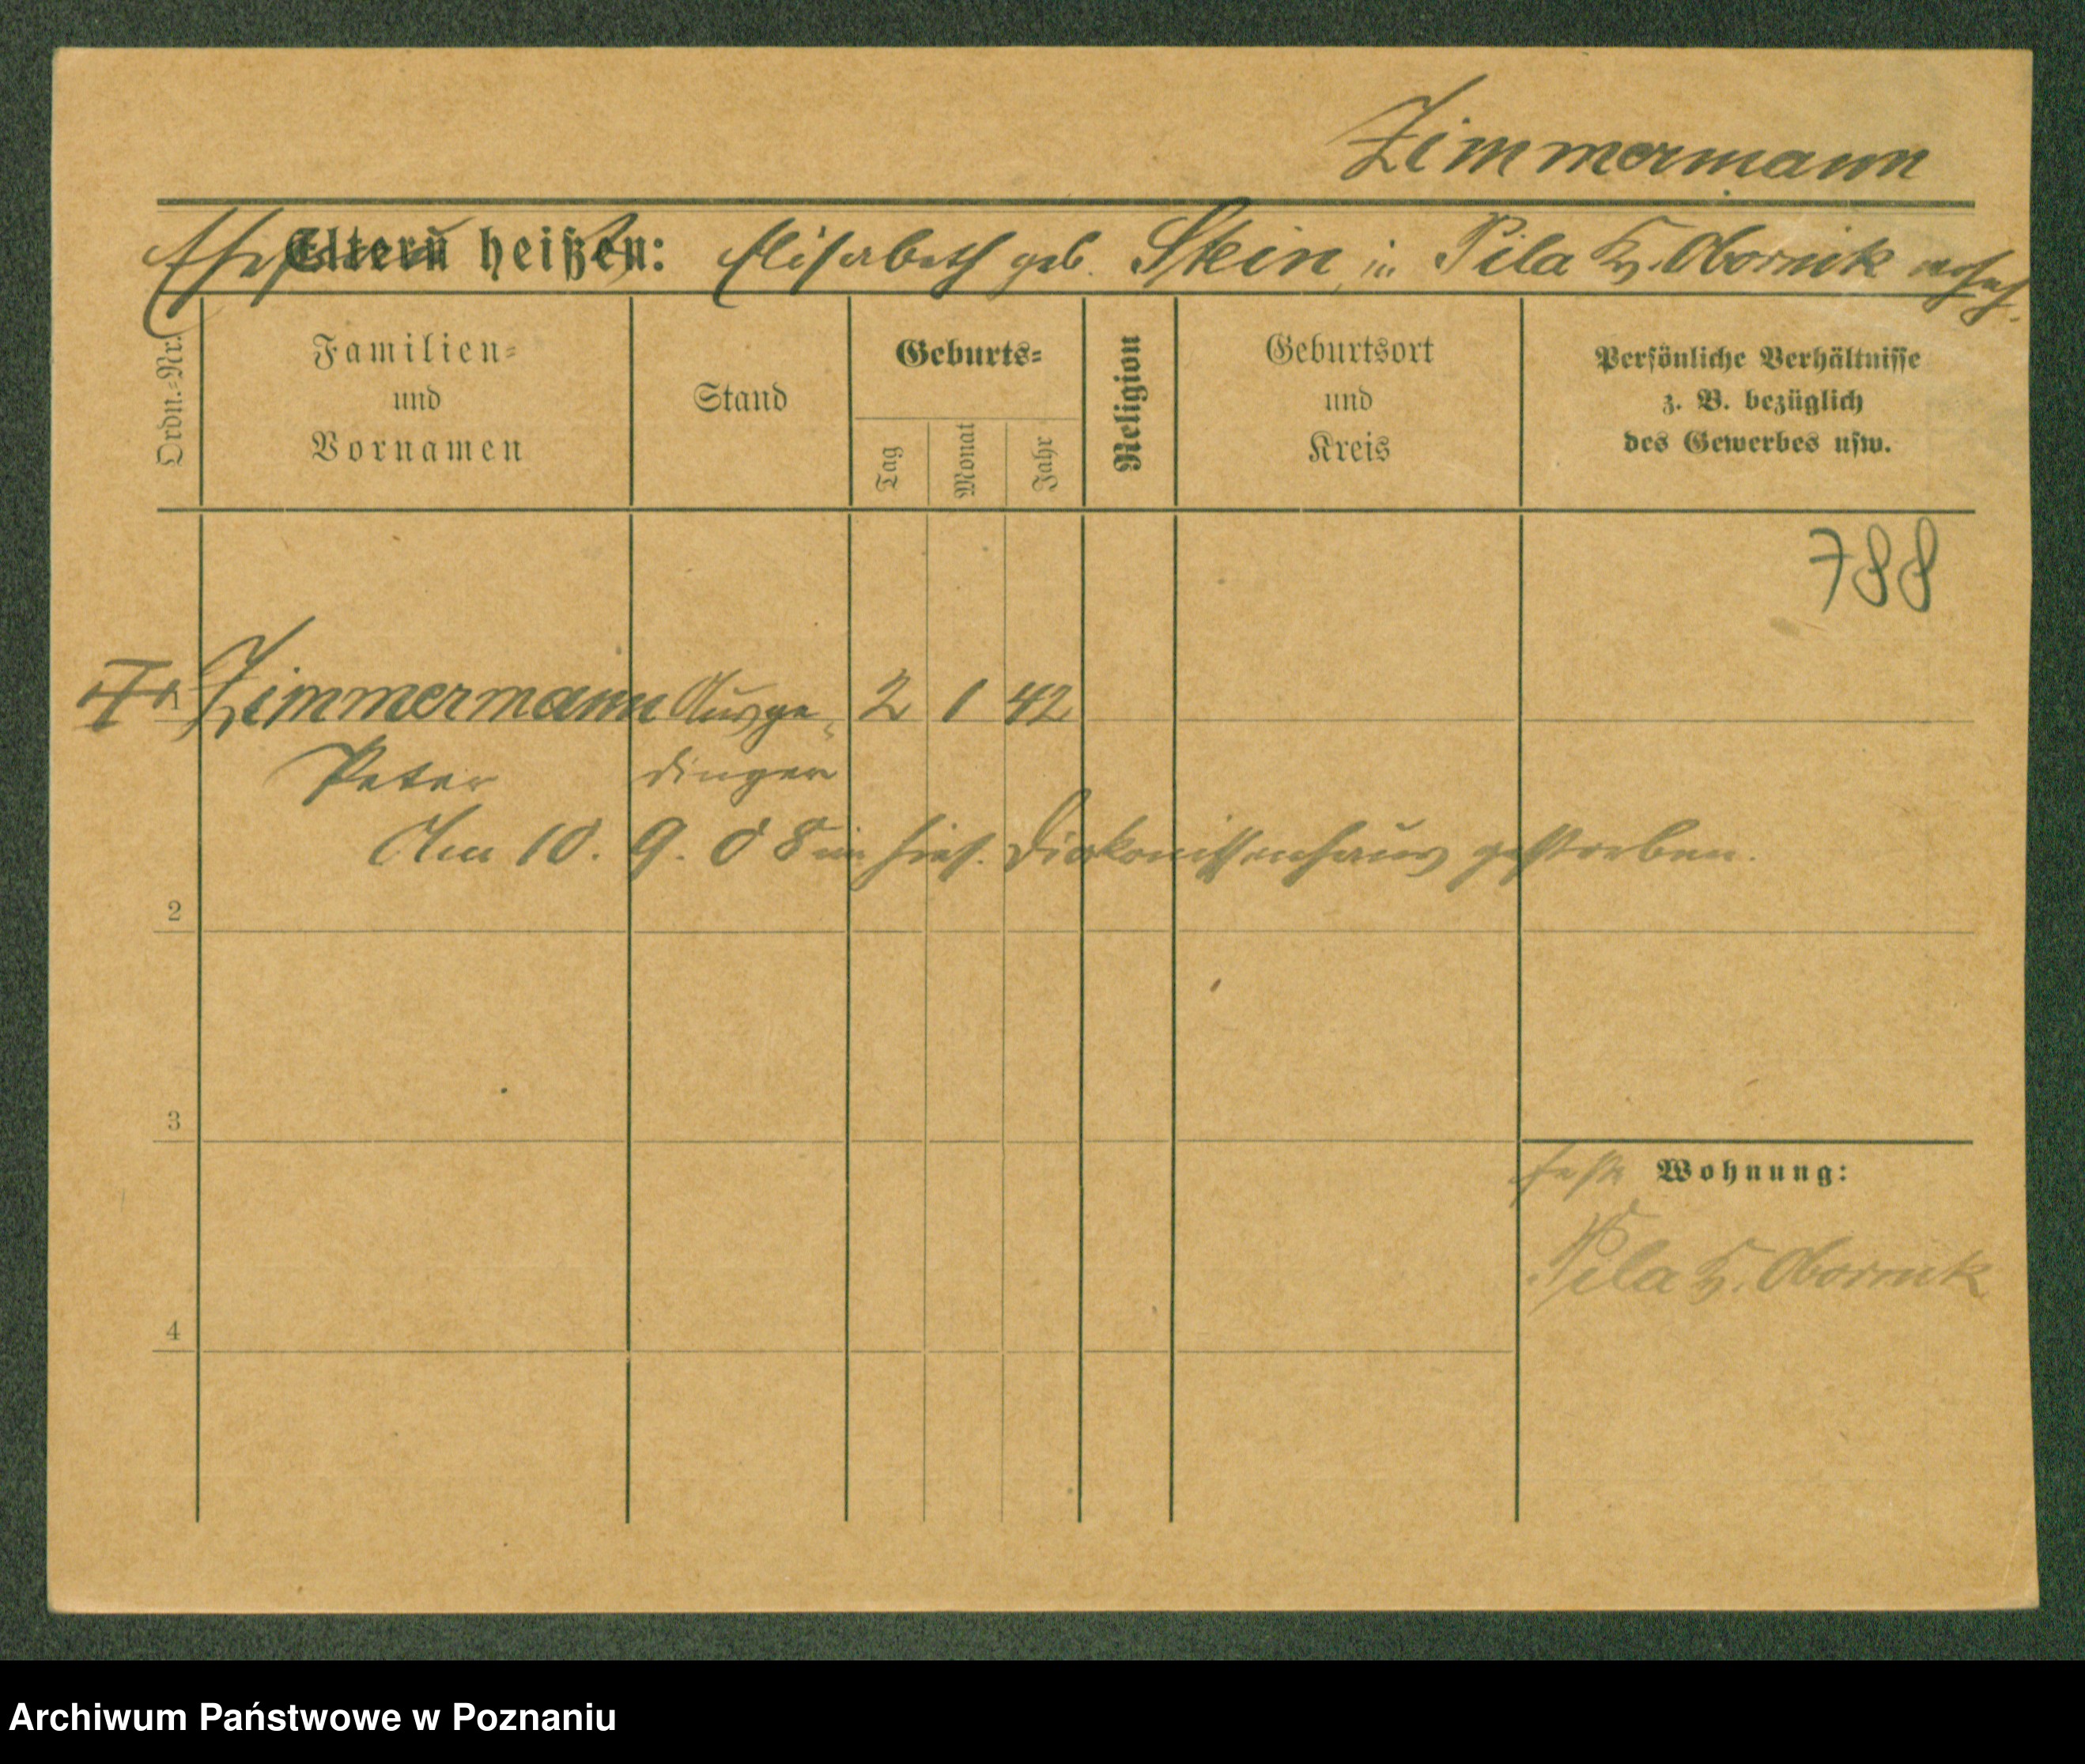 Zimmermann
Eltern heißen: Elisabeth geb. Stein, in Pila Kr. Obornik wohnh.
Ordn.-Nr.
Familien-
und
Vornamen
Stand
Geburts-
Tag
Monat
Jahr
Religion
Geburtsort
und
Kreis
Persönliche Verhältnisse
z. B. bezüglich
des Gewerbes usw.
788
1 Zimmermann Ausge- 2 1 42
Peter dinger
Am 10. 9. 08 im hies. Diakonissenhaus gestorben.
2
3
Wohnung:
Pila Kr. Obornik
4
Archiwum Państwowe w Poznaniu